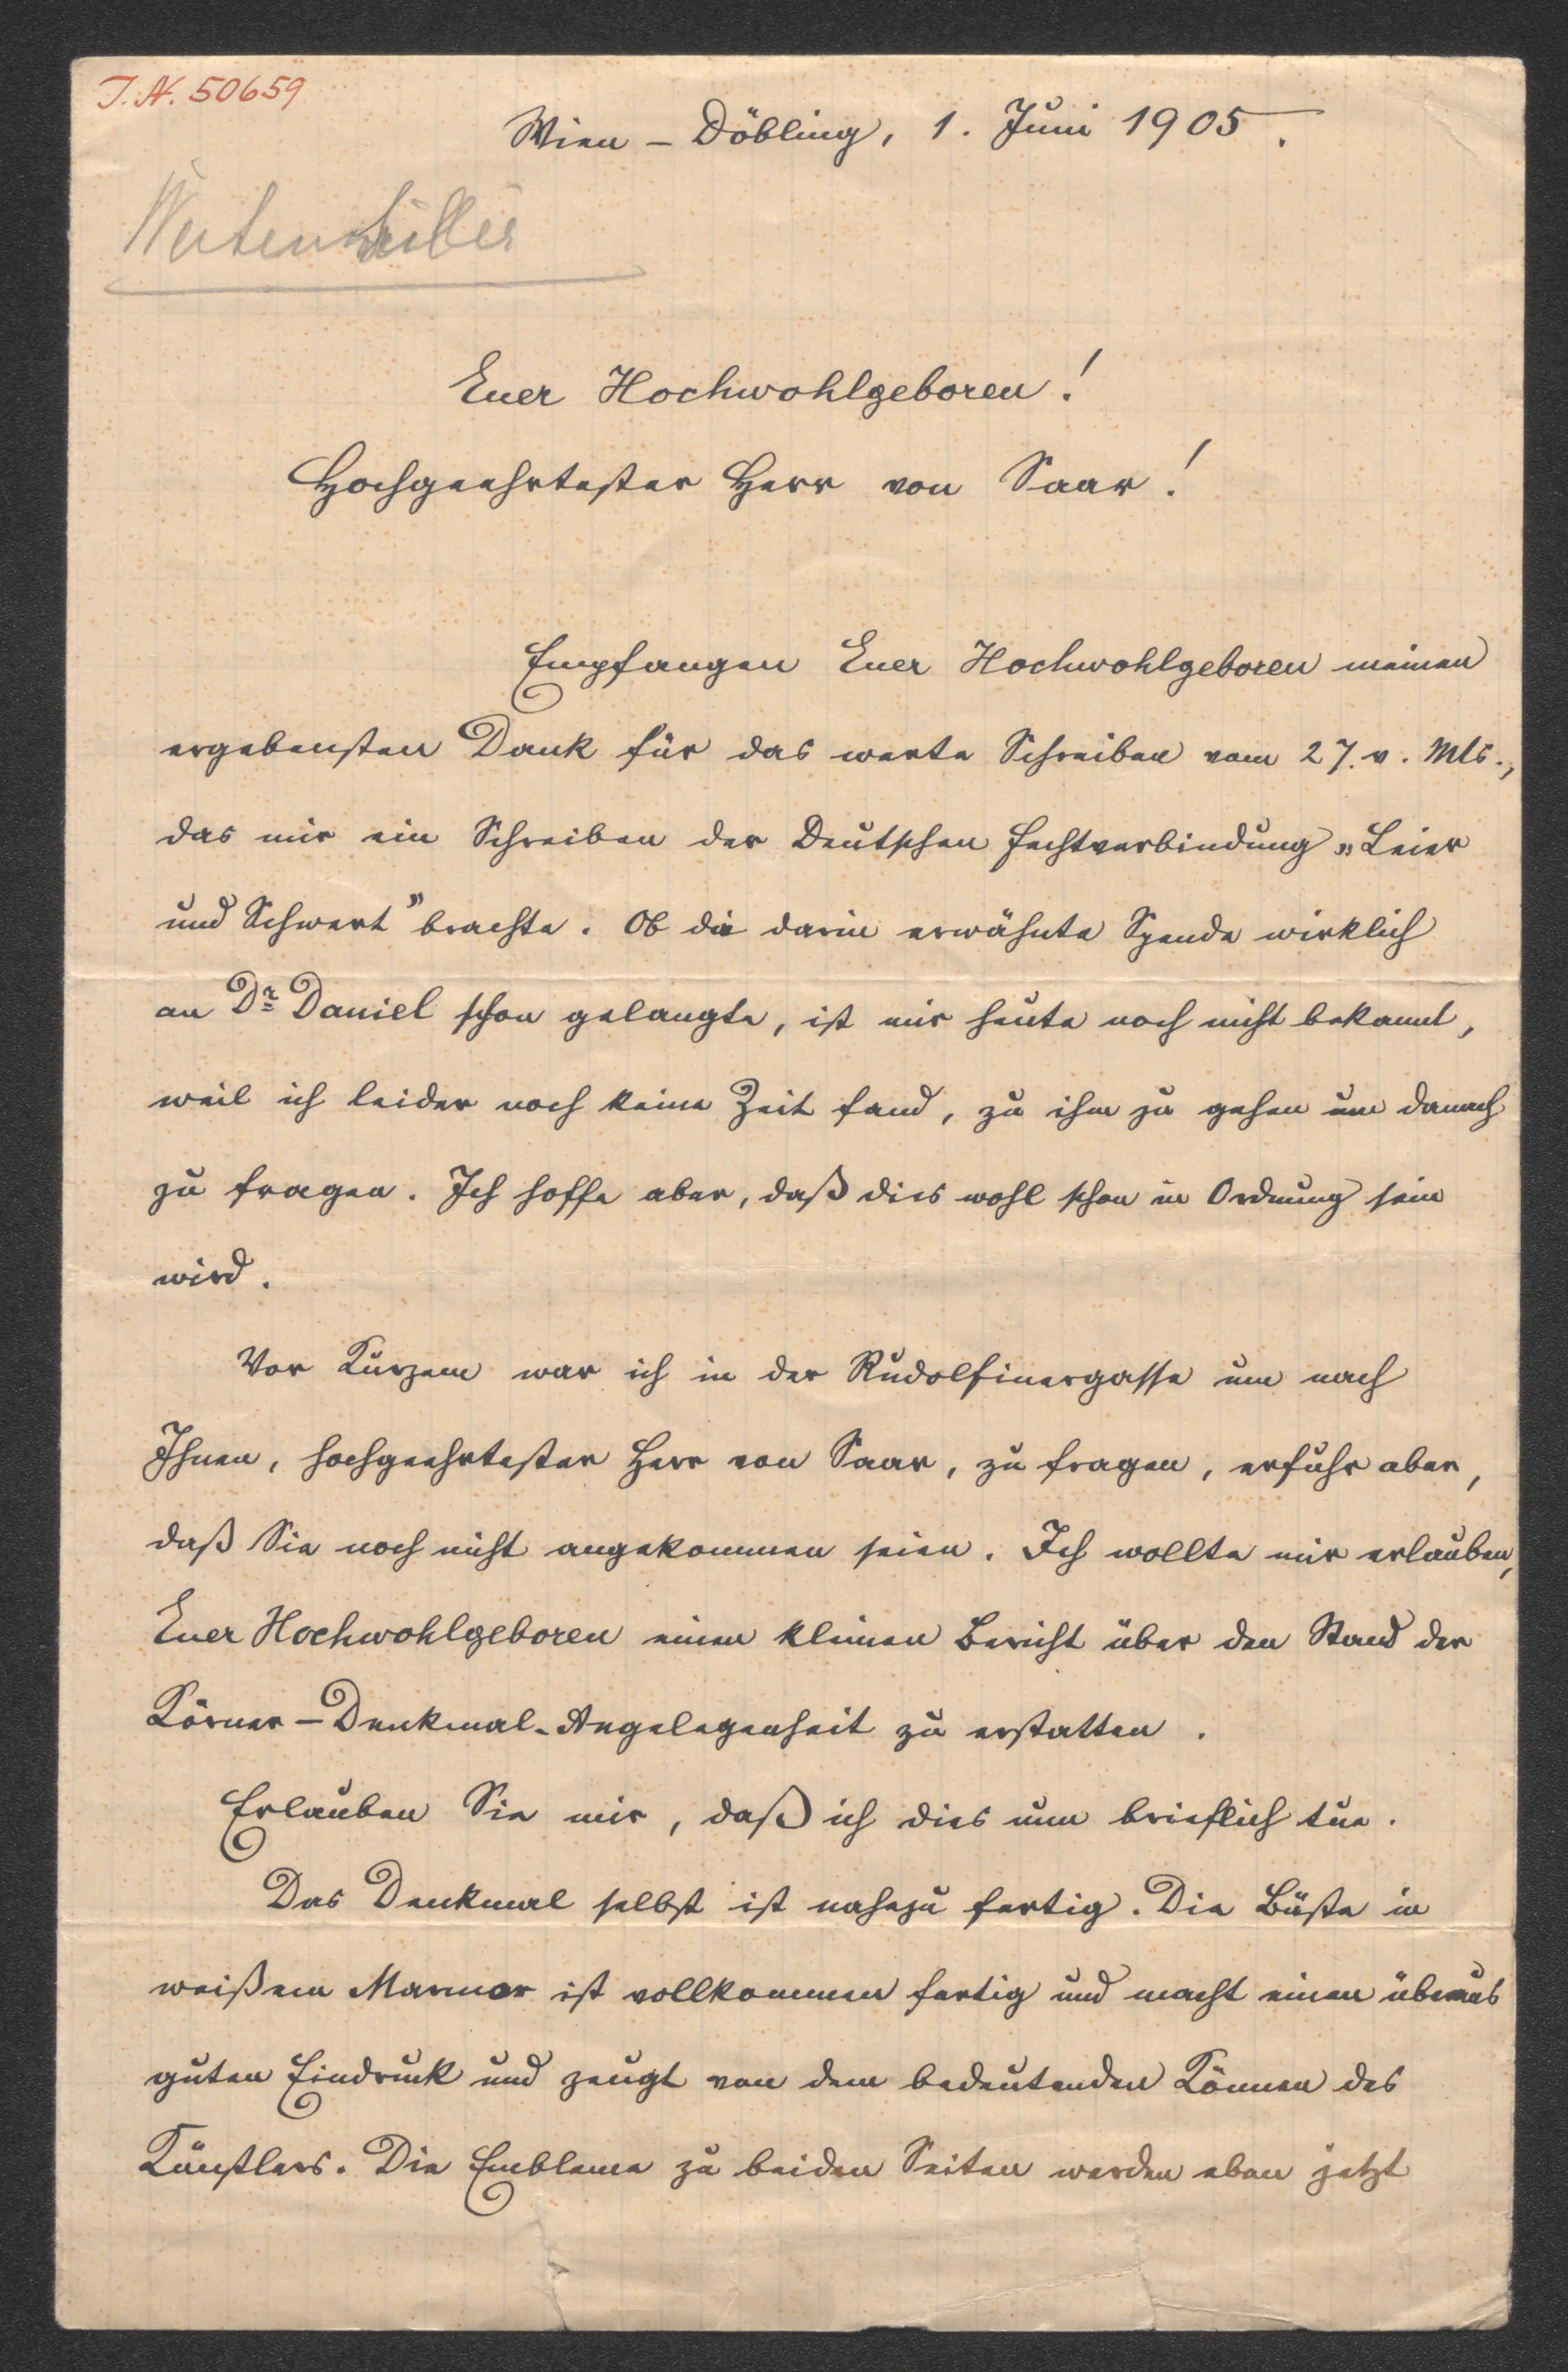 J. N. 50659
Wien – Döbling, 1. Juni 1905.
Euer Hochwohlgeboren!
Hochgeehrtester Herr von Saar!
Empfangen Euer Hochwohlgeboren meinen
ergebensten Dank für das werte Schreiben vom 27. v. Mts.,
das mir ein Schreiben der Deutschen Fechtverbindung „Leier
und Schwert" brachte. Ob die darin erwähnte Spende wirklich
an Dr Daniel schon gelangte, ist mir heute noch nicht bekannt,
weil ich leider noch keine Zeit fand, zu ihm zu gehen um danach
zu fragen. Ich hoffe aber, daß dies wohl schon in Ordnung sein
wird.
Vor Kurzem war ich in der Rudolfinergasse um nach
Ihnen, hochgeehrtester Herr von Saar, zu fragen, erfuhr aber,
daß Sie noch nicht angekommen seien. Ich wollte mir erlauben,
Euer Hochwohlgeboren einen kleinen Bericht über den Stand der
Körner – Denkmal-Angelegenheit zu erstatten.
Erlauben Sie mir, daß ich dies nun brieflich tue.
Das Denkmal selbst ist nahezu fertig. Die Büste in
weißem Marmor ist vollkommen fertig und macht einen überaus
guten Eindruck und zeugt von dem bedeutenden Können des
Künstlers. Die Embleme zu beiden Seiten werden eben jetzt